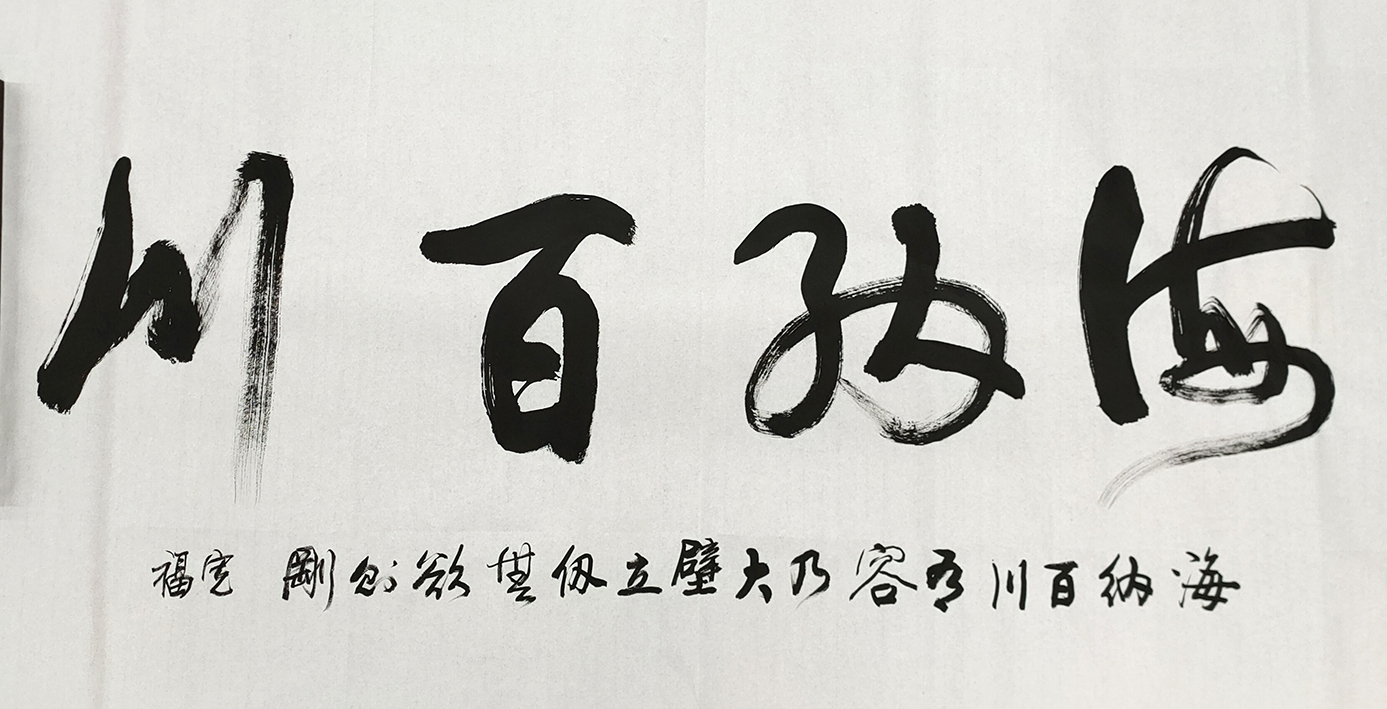 海納百川
海納百川有容乃大壁立仞無欲則剛 福